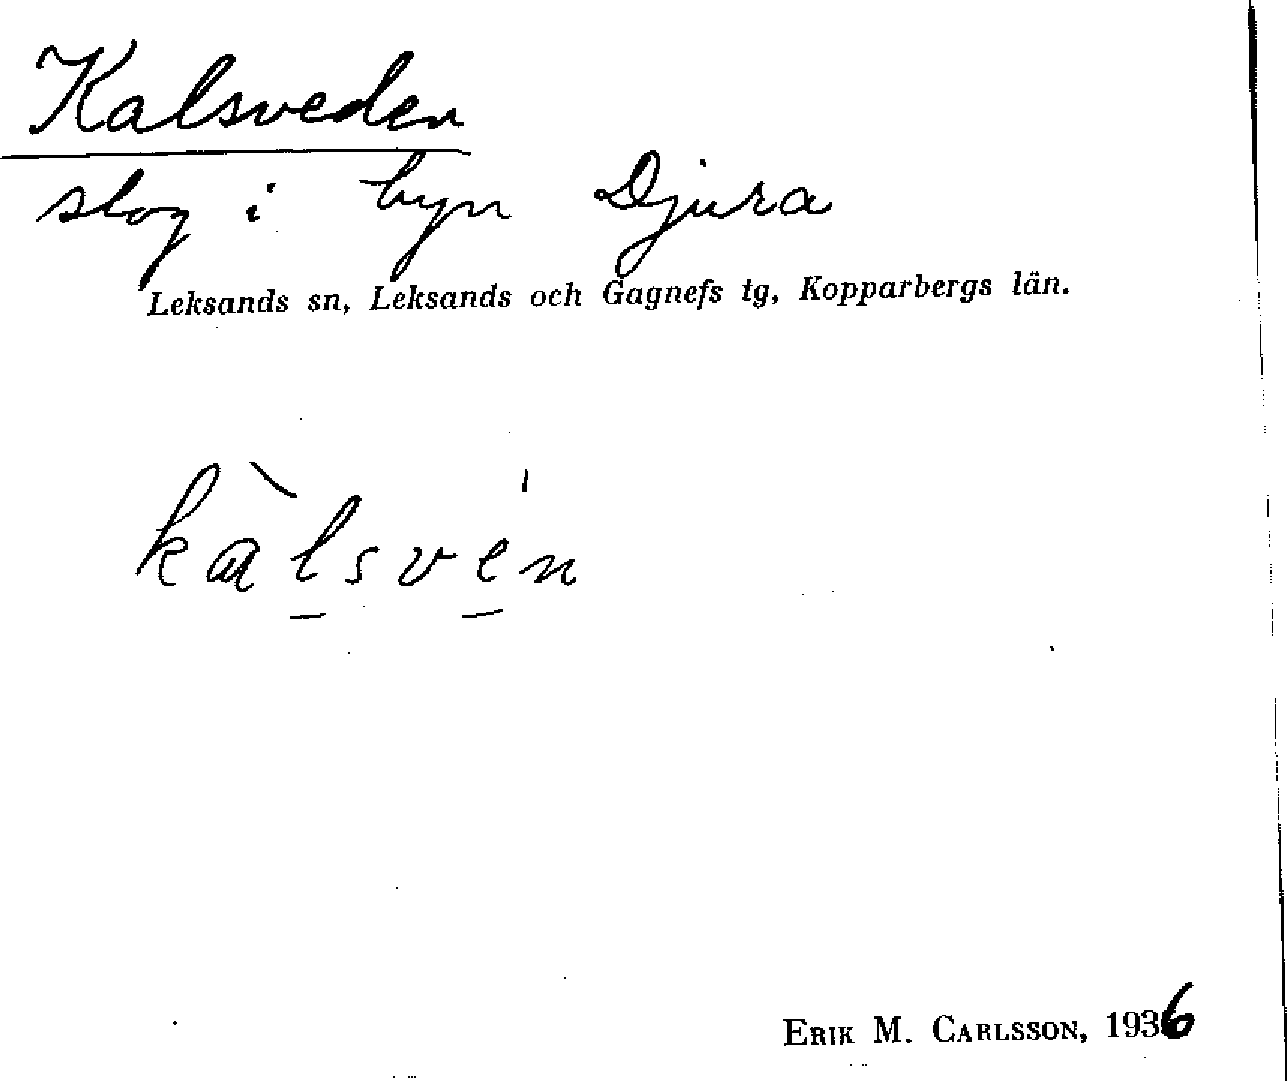 Kalsveden
slog i byn Djura
Leksands sn, Leksands och Gagnefs tg, Kopparbergs län.
kàlsvén
ERIK M. CARLSSON, 1936